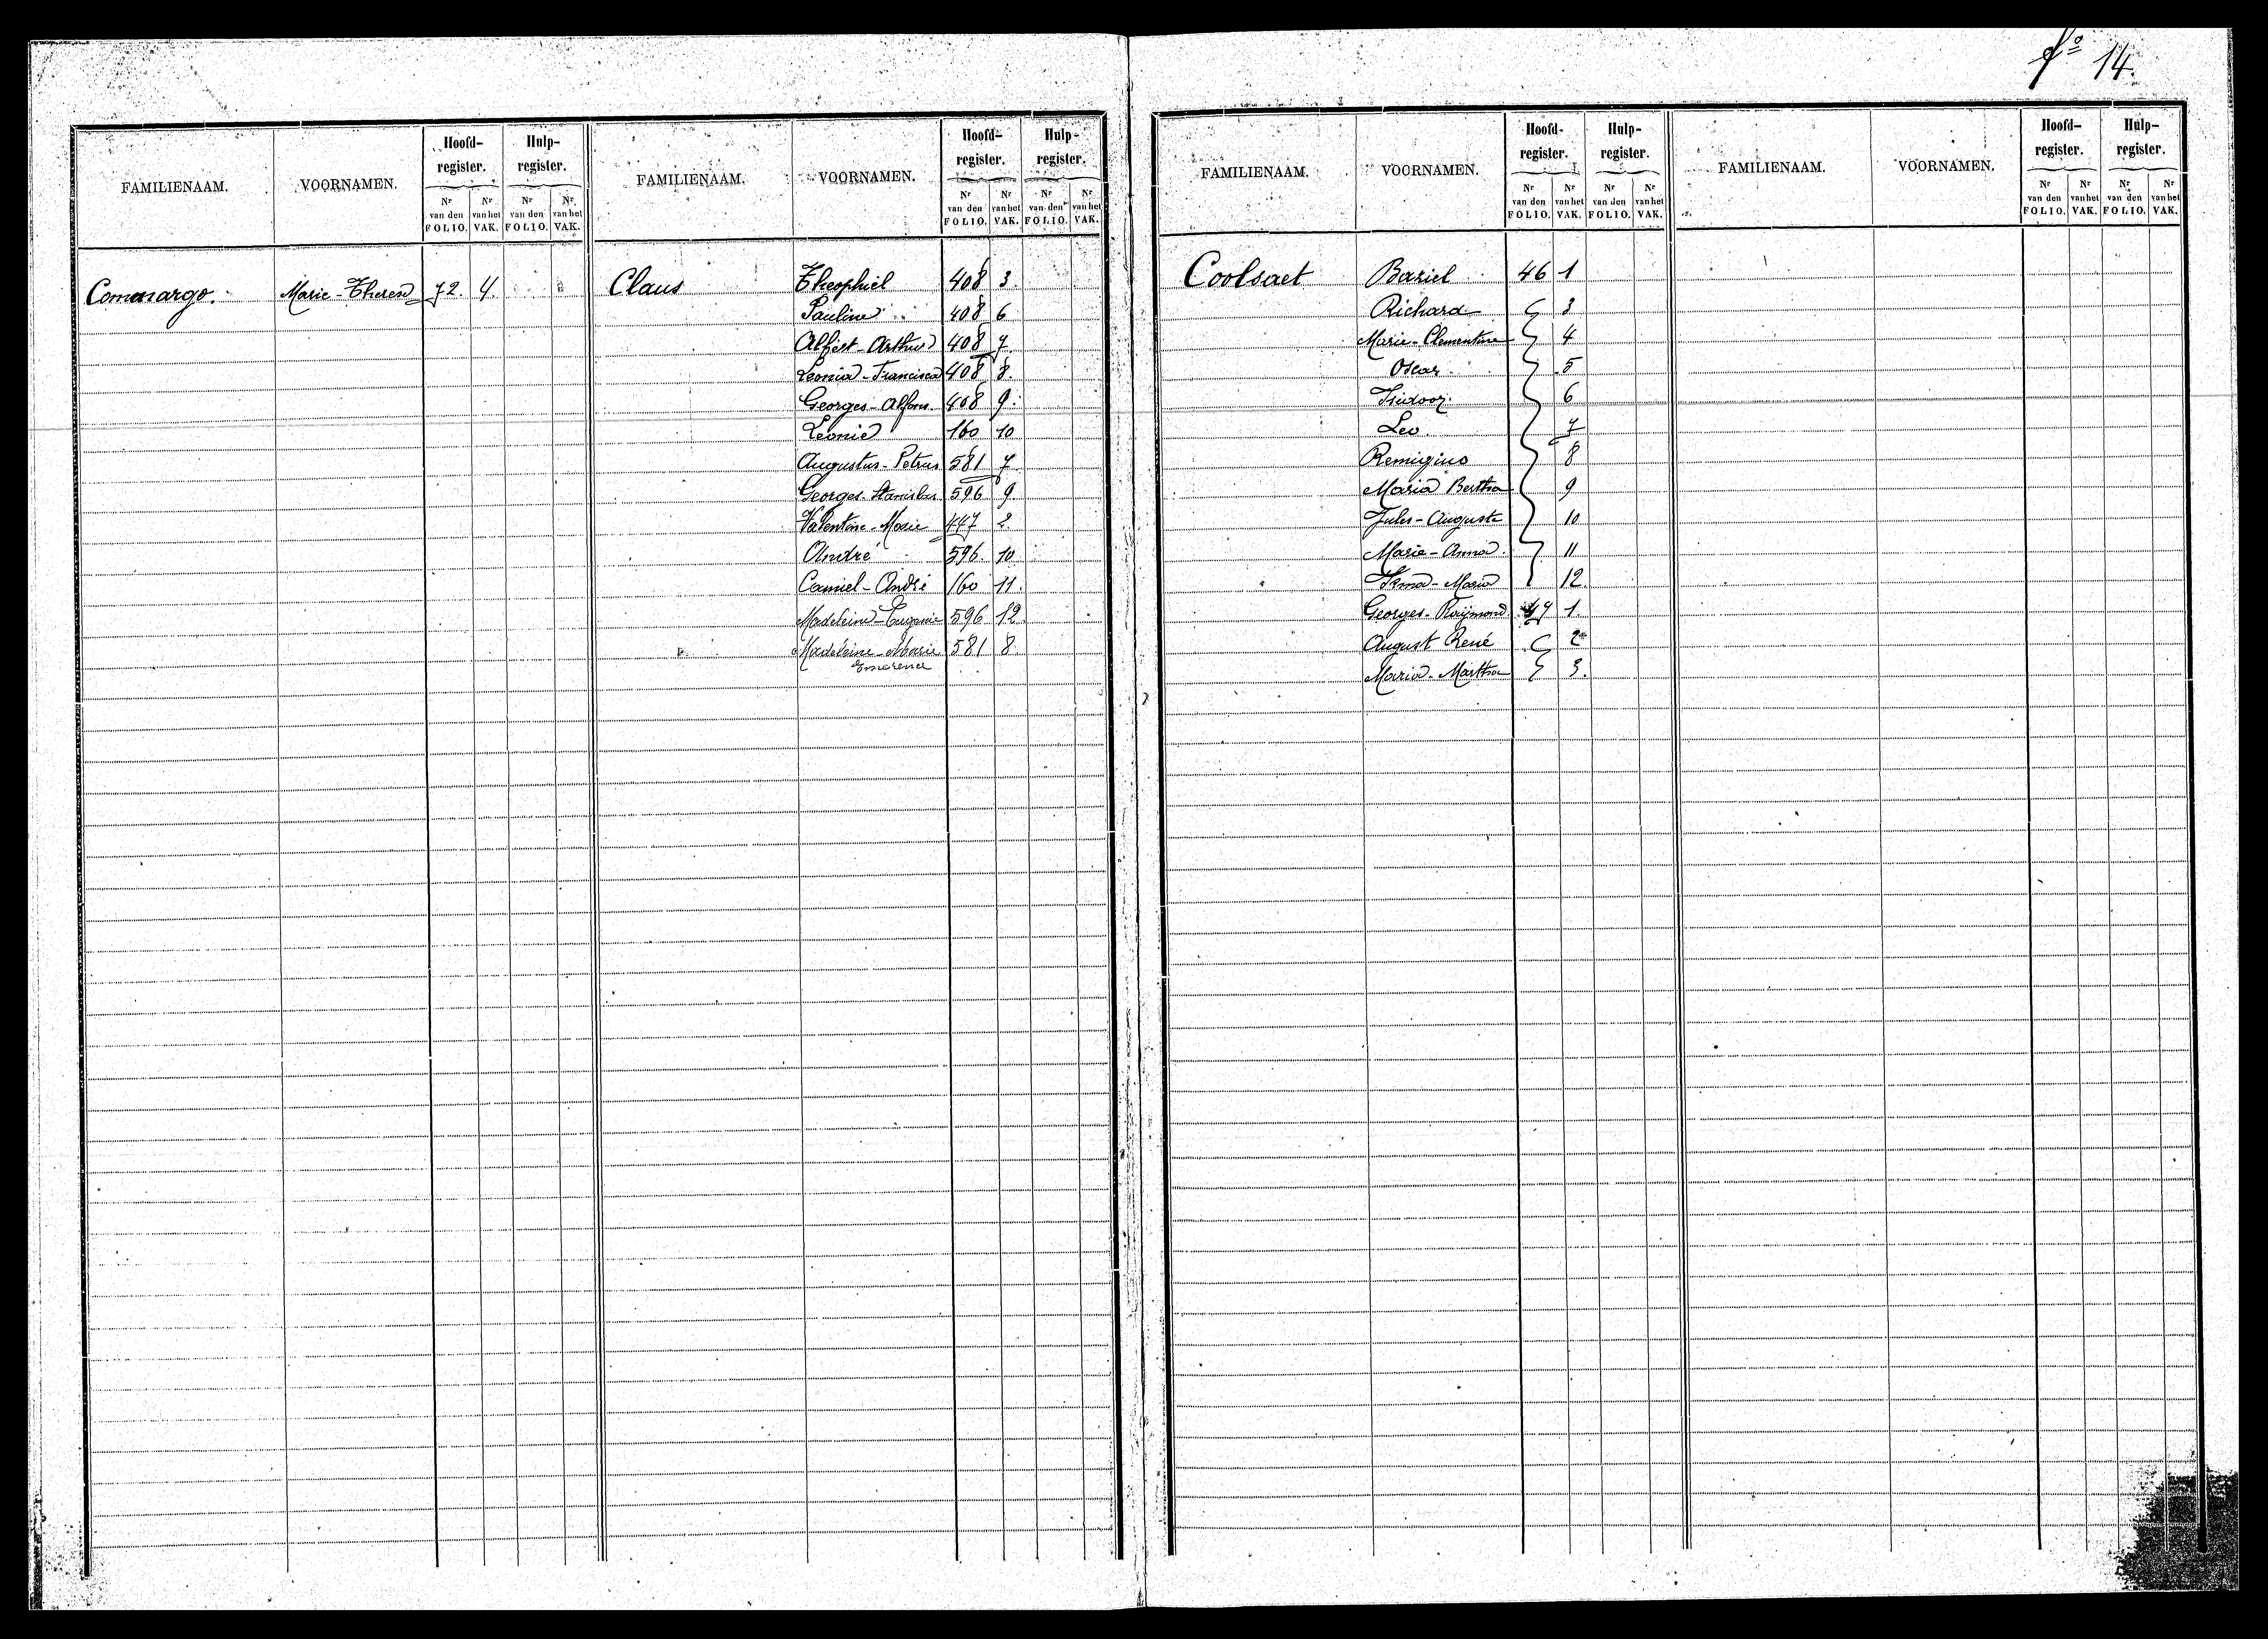 fo 14.
FAMILIENAAM. VOORNAMEN. Hoofd-register. Hulp-register.
Nr van den FOLIO. Nr van het VAK. Nr van den FOLIO. Nr van het VAK.
Comenargo. Marie-Theresa 72. 4.
FAMILIENAAM. VOORNAMEN. Hoofd-register. Hulp-register.
Nr van den FOLIO. Nr van het VAK. Nr van den FOLIO. Nr van het VAK.
Claus Theophiel 408 3.
Pauline 408 6
Arthur 408 7
Leonia-Francisca 408 8.
Georges-Alfons 408 9.
Leonie 160 10
Augustus-Petrus 581 7
Georges-Stanislas 596 9.
Valentine-Marie 447 2
André 596. 10
Camiel-André 160 11.
Madeleine-Eugenie 596 12
Madeleine-Marie 581 8
Emerence
FAMILIENAAM. VOORNAMEN. Hoofd-register. Hulp-register.
Nr van den FOLIO. Nr van het VAK. Nr van den FOLIO. Nr van het VAK.
Coolsaet Baziel 46 1
Richard 3
Marie-Clementine 4
Oscar 5
Isidoor 6
Leo 7
Remigius 8
Maria Bertha 9
Jules-Auguste 10
Marie-Anna 11
Irma-Maria 12.
Georges-Raymond 47 1.
August René 2
Maria-Martha 3.
FAMILIENAAM. VOORNAMEN. Hoofd-register. Hulp-register.
Nr van den FOLIO. Nr van het VAK. Nr van den FOLIO. Nr van het VAK.